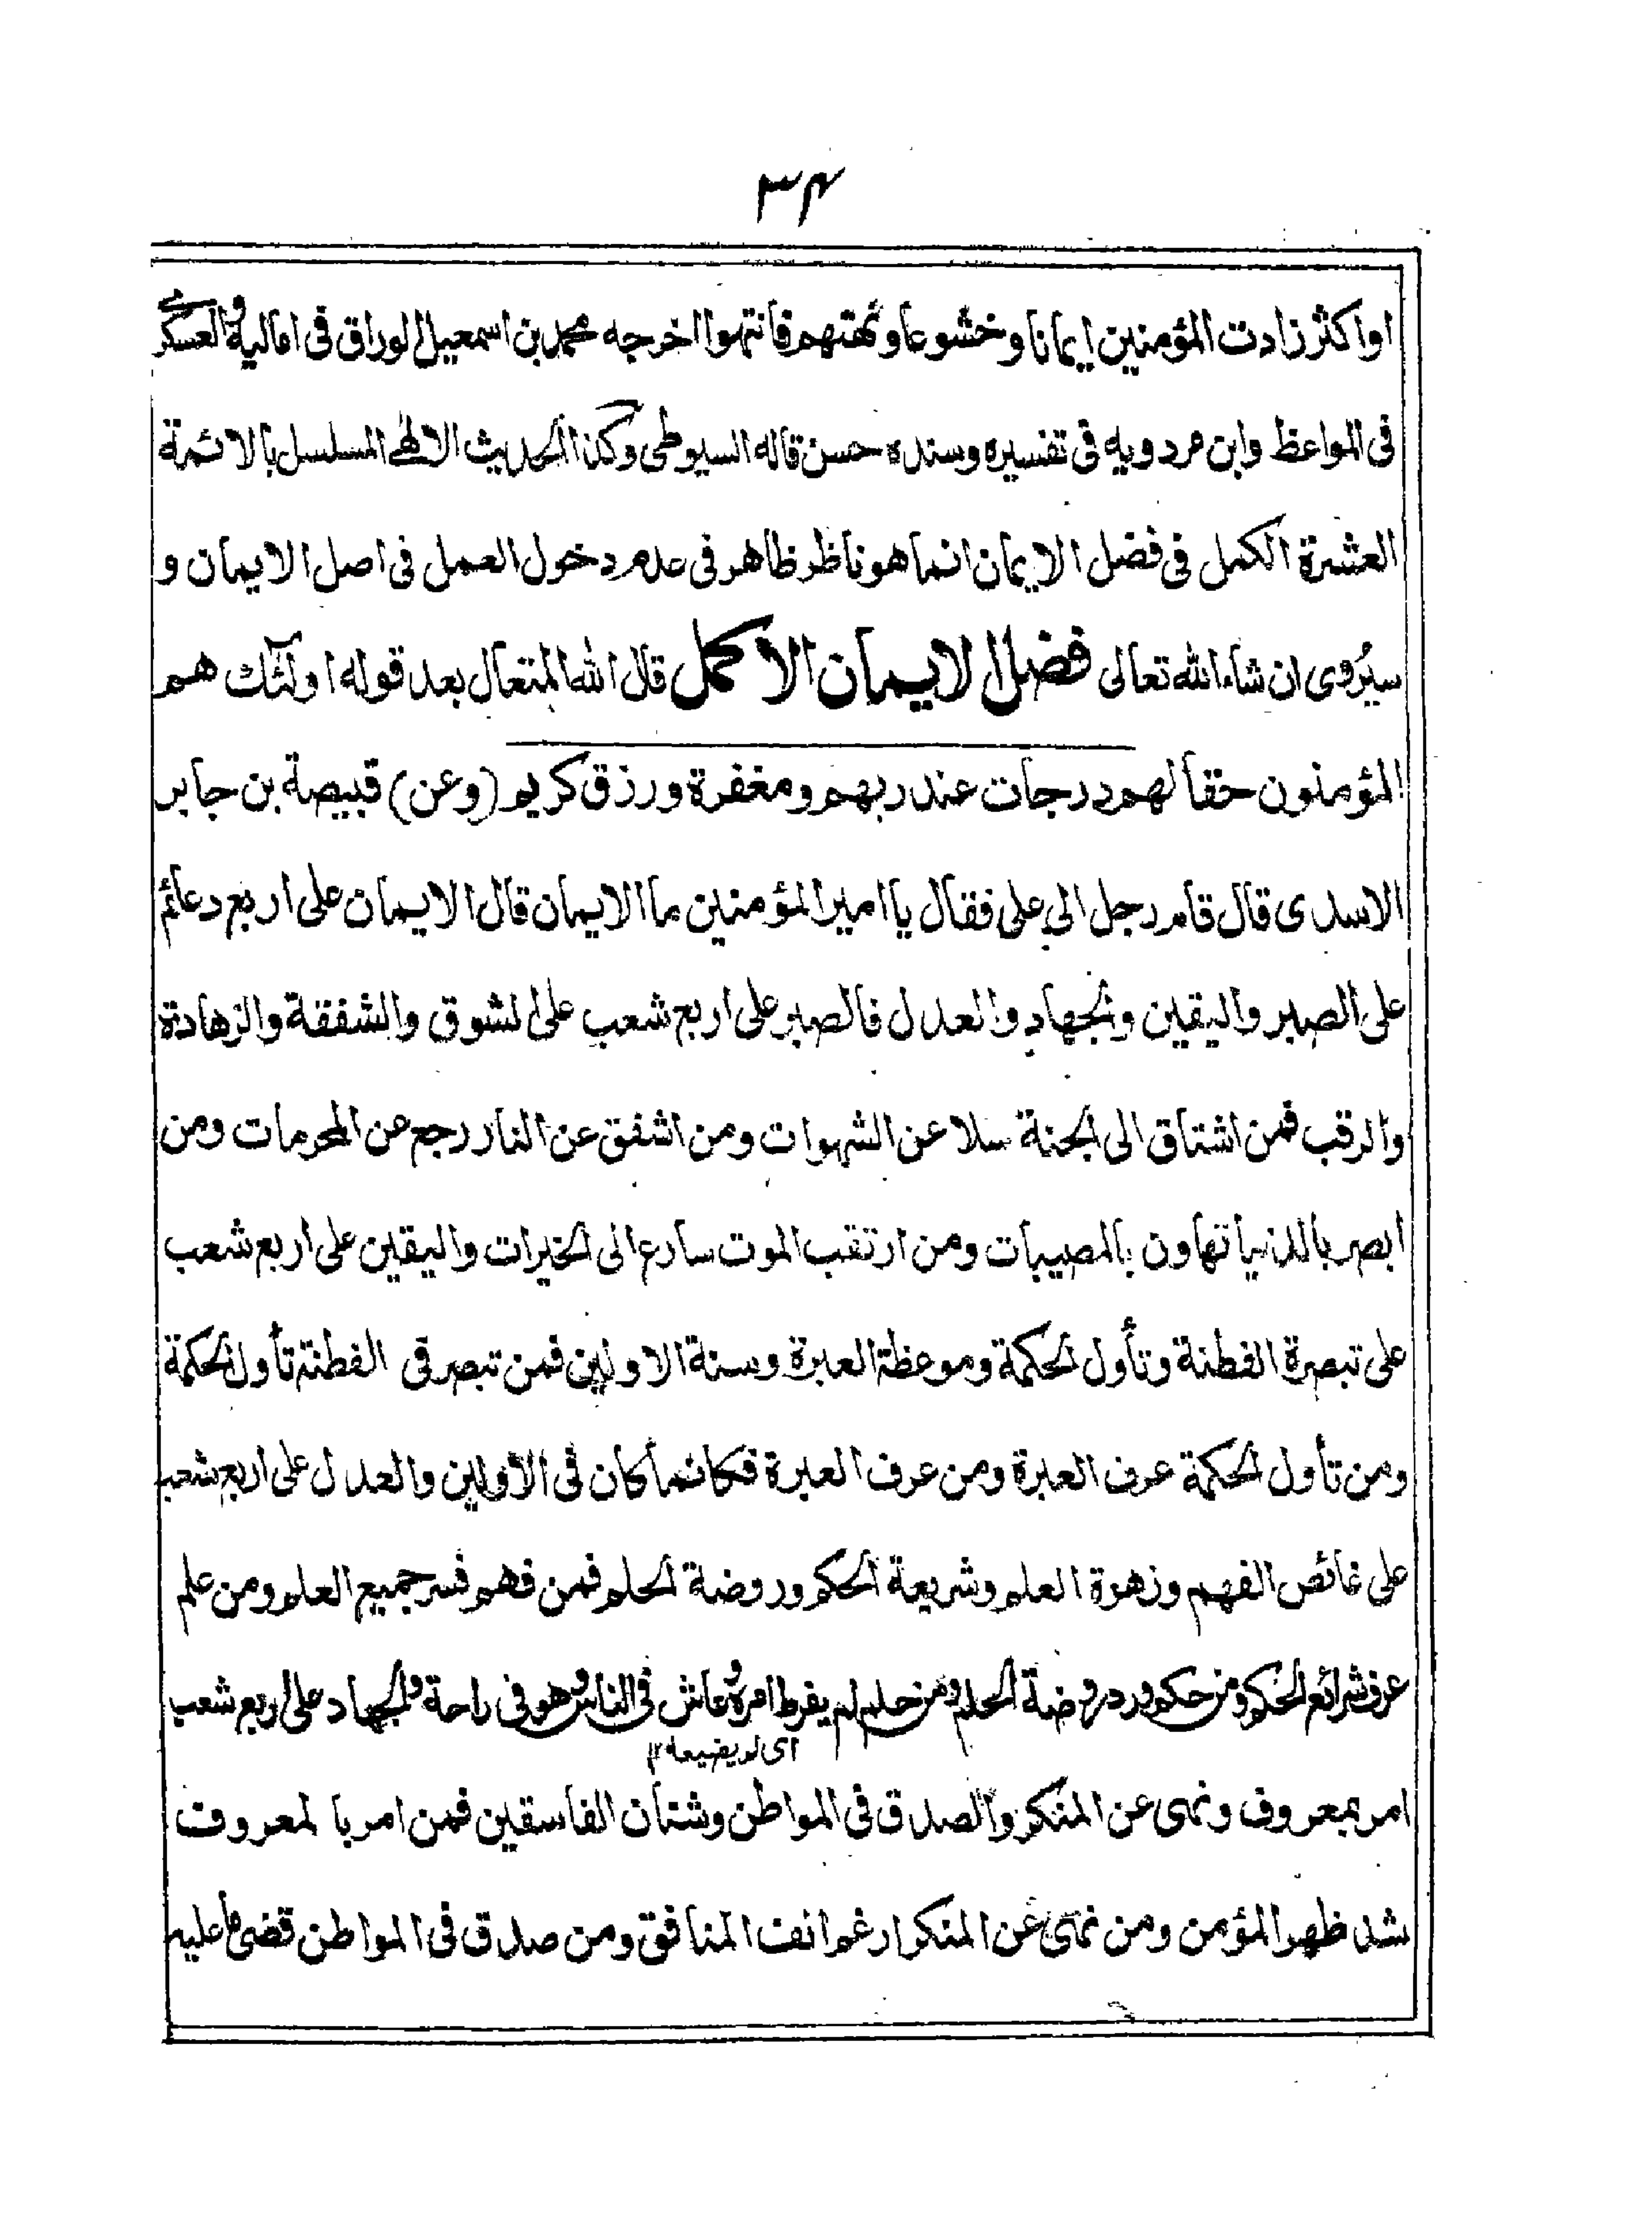 ٣٤
او اكثر زادت المؤمنين ايمانا وخشوعا ونهتهم فانتهوا اخرجه محمد بن اسمعيل الوراق فى اماليه والعسكرى
فى المواعظ وابن مردويه فى تفسيره وسنده حسن قاله السيوطى وكذا الحديث الالهى المسلسل بالائمة
العشرة الكمل فى فضل الايمان انما هو ناظر ظاهر فى عدم دخول العمل فى اصل الايمان و
سيُروى ان شاء الله تعالى فضل الايمان الاكمل قال الله المتعال بعد قوله اولئك هم
المؤمنون حقا لهم درجات عند ربهم ومغفرة ورزق كريم (وعن) قبيصة بن جابر
الاسدى قال قام رجل الى على فقال يا امير المؤمنين ما الايمان قال الايمان على اربع دعائم
على الصبر واليقين والجهاد والعدل فالصبر على اربع شعب على الشوق والشفقة والزهادة
والرقب فمن اشتاق الى الجنة سلا عن الشهوات ومن اشفق عن النار رجع عن المحرمات ومن
ابصر بالدنيا تهاون بالمصيبات ومن ارتقب الموت سارع الى الخيرات واليقين على اربع شعب
على تبصرة الفطنة وتأول الحكمة وموعظة العبرة وسنة الاولين فمن تبصر فى الفطنة تأول الحكمة
ومن تأول الحكمة عرف العبرة ومن عرف العبرة فكانما كان فى الاولين والعدل على اربع شعب
على غائص الفهم وزهرة العلم وشريعة الحكم وروضة الحلم فمن فهم فسر جميع العلم ومن علم
عرف شرائع الحكم ومن حكم ورد روضة الحلم ومن حلم لم يفرط امره وعاش فى الناس وهو فى راحة والجهاد على اربع شعب
اى لم يضيعه ١٢
امر بمعروف ونهى عن المنكر والصدق فى المواطن وشنآن الفاسقين فمن امر بالمعروف
شد ظهر المؤمن ومن نهى عن المنكر ارغم انف المنافق ومن صدق فى المواطن قضى ما عليه